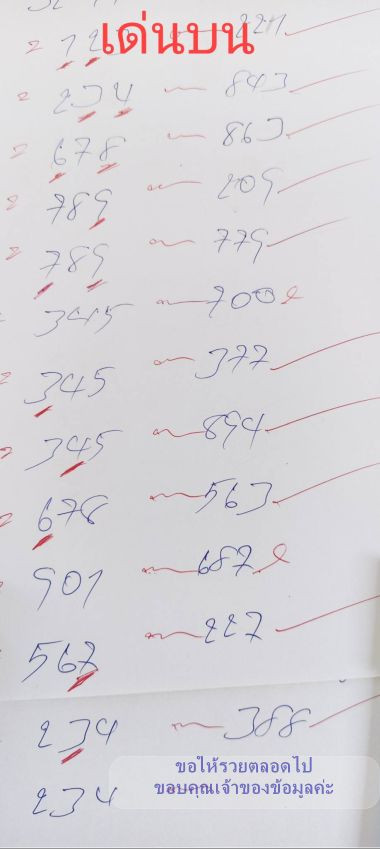 เด่นบน
123 221
234 843
678 863
789 209
789 779
345 700
345 377
345 894
678 563
901 687
567 227
234 388
234
ขอให้รวยตลอดไป
ขอบคุณเจ้าของข้อมูลค่ะ